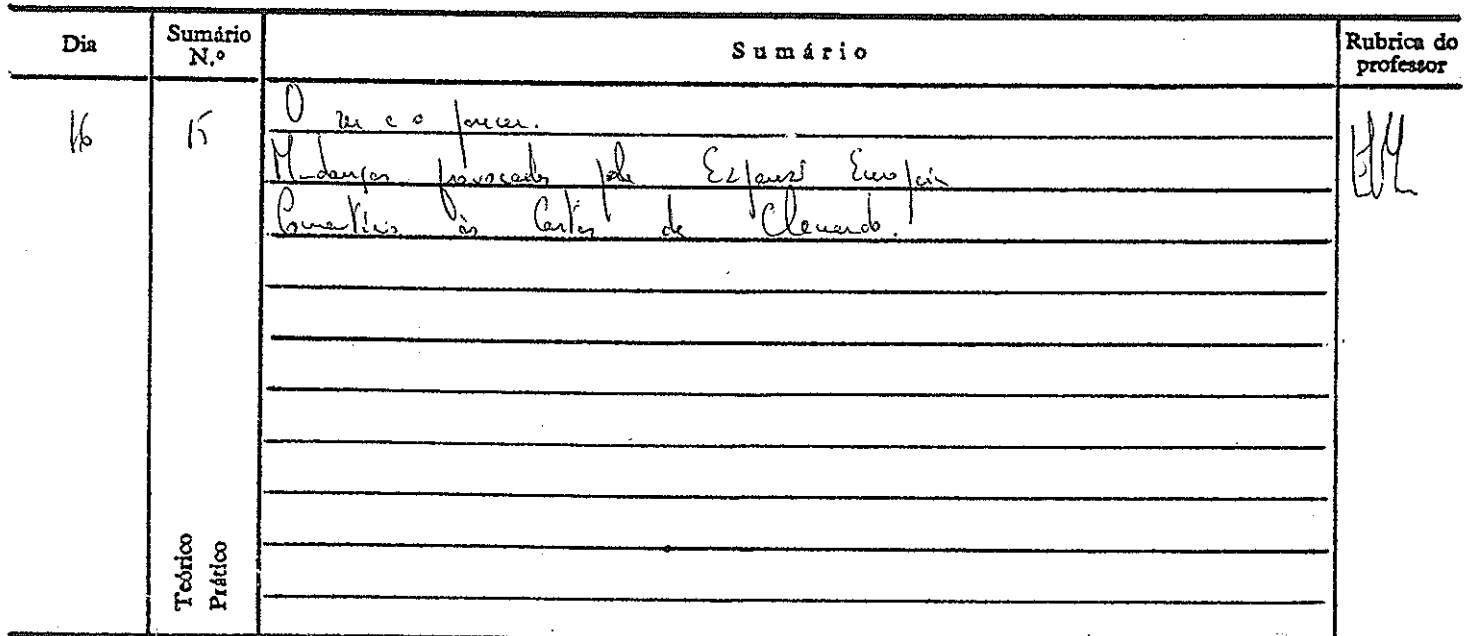 Dia
Sumário N.º
Sumário
Rubrica do professor
16
15
O ser e o parecer.
Mudanças provocadas pela Expansão Europeia
Comentários às Cartas de Clenardo.
Teórico
Prático